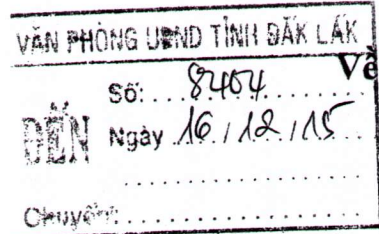 VĂN PHÒNG UBND TỈNH ĐẮK LẮK
Về
Số: 8404
ĐẾN
Ngày 16 / 12 / 15
Chuyển: